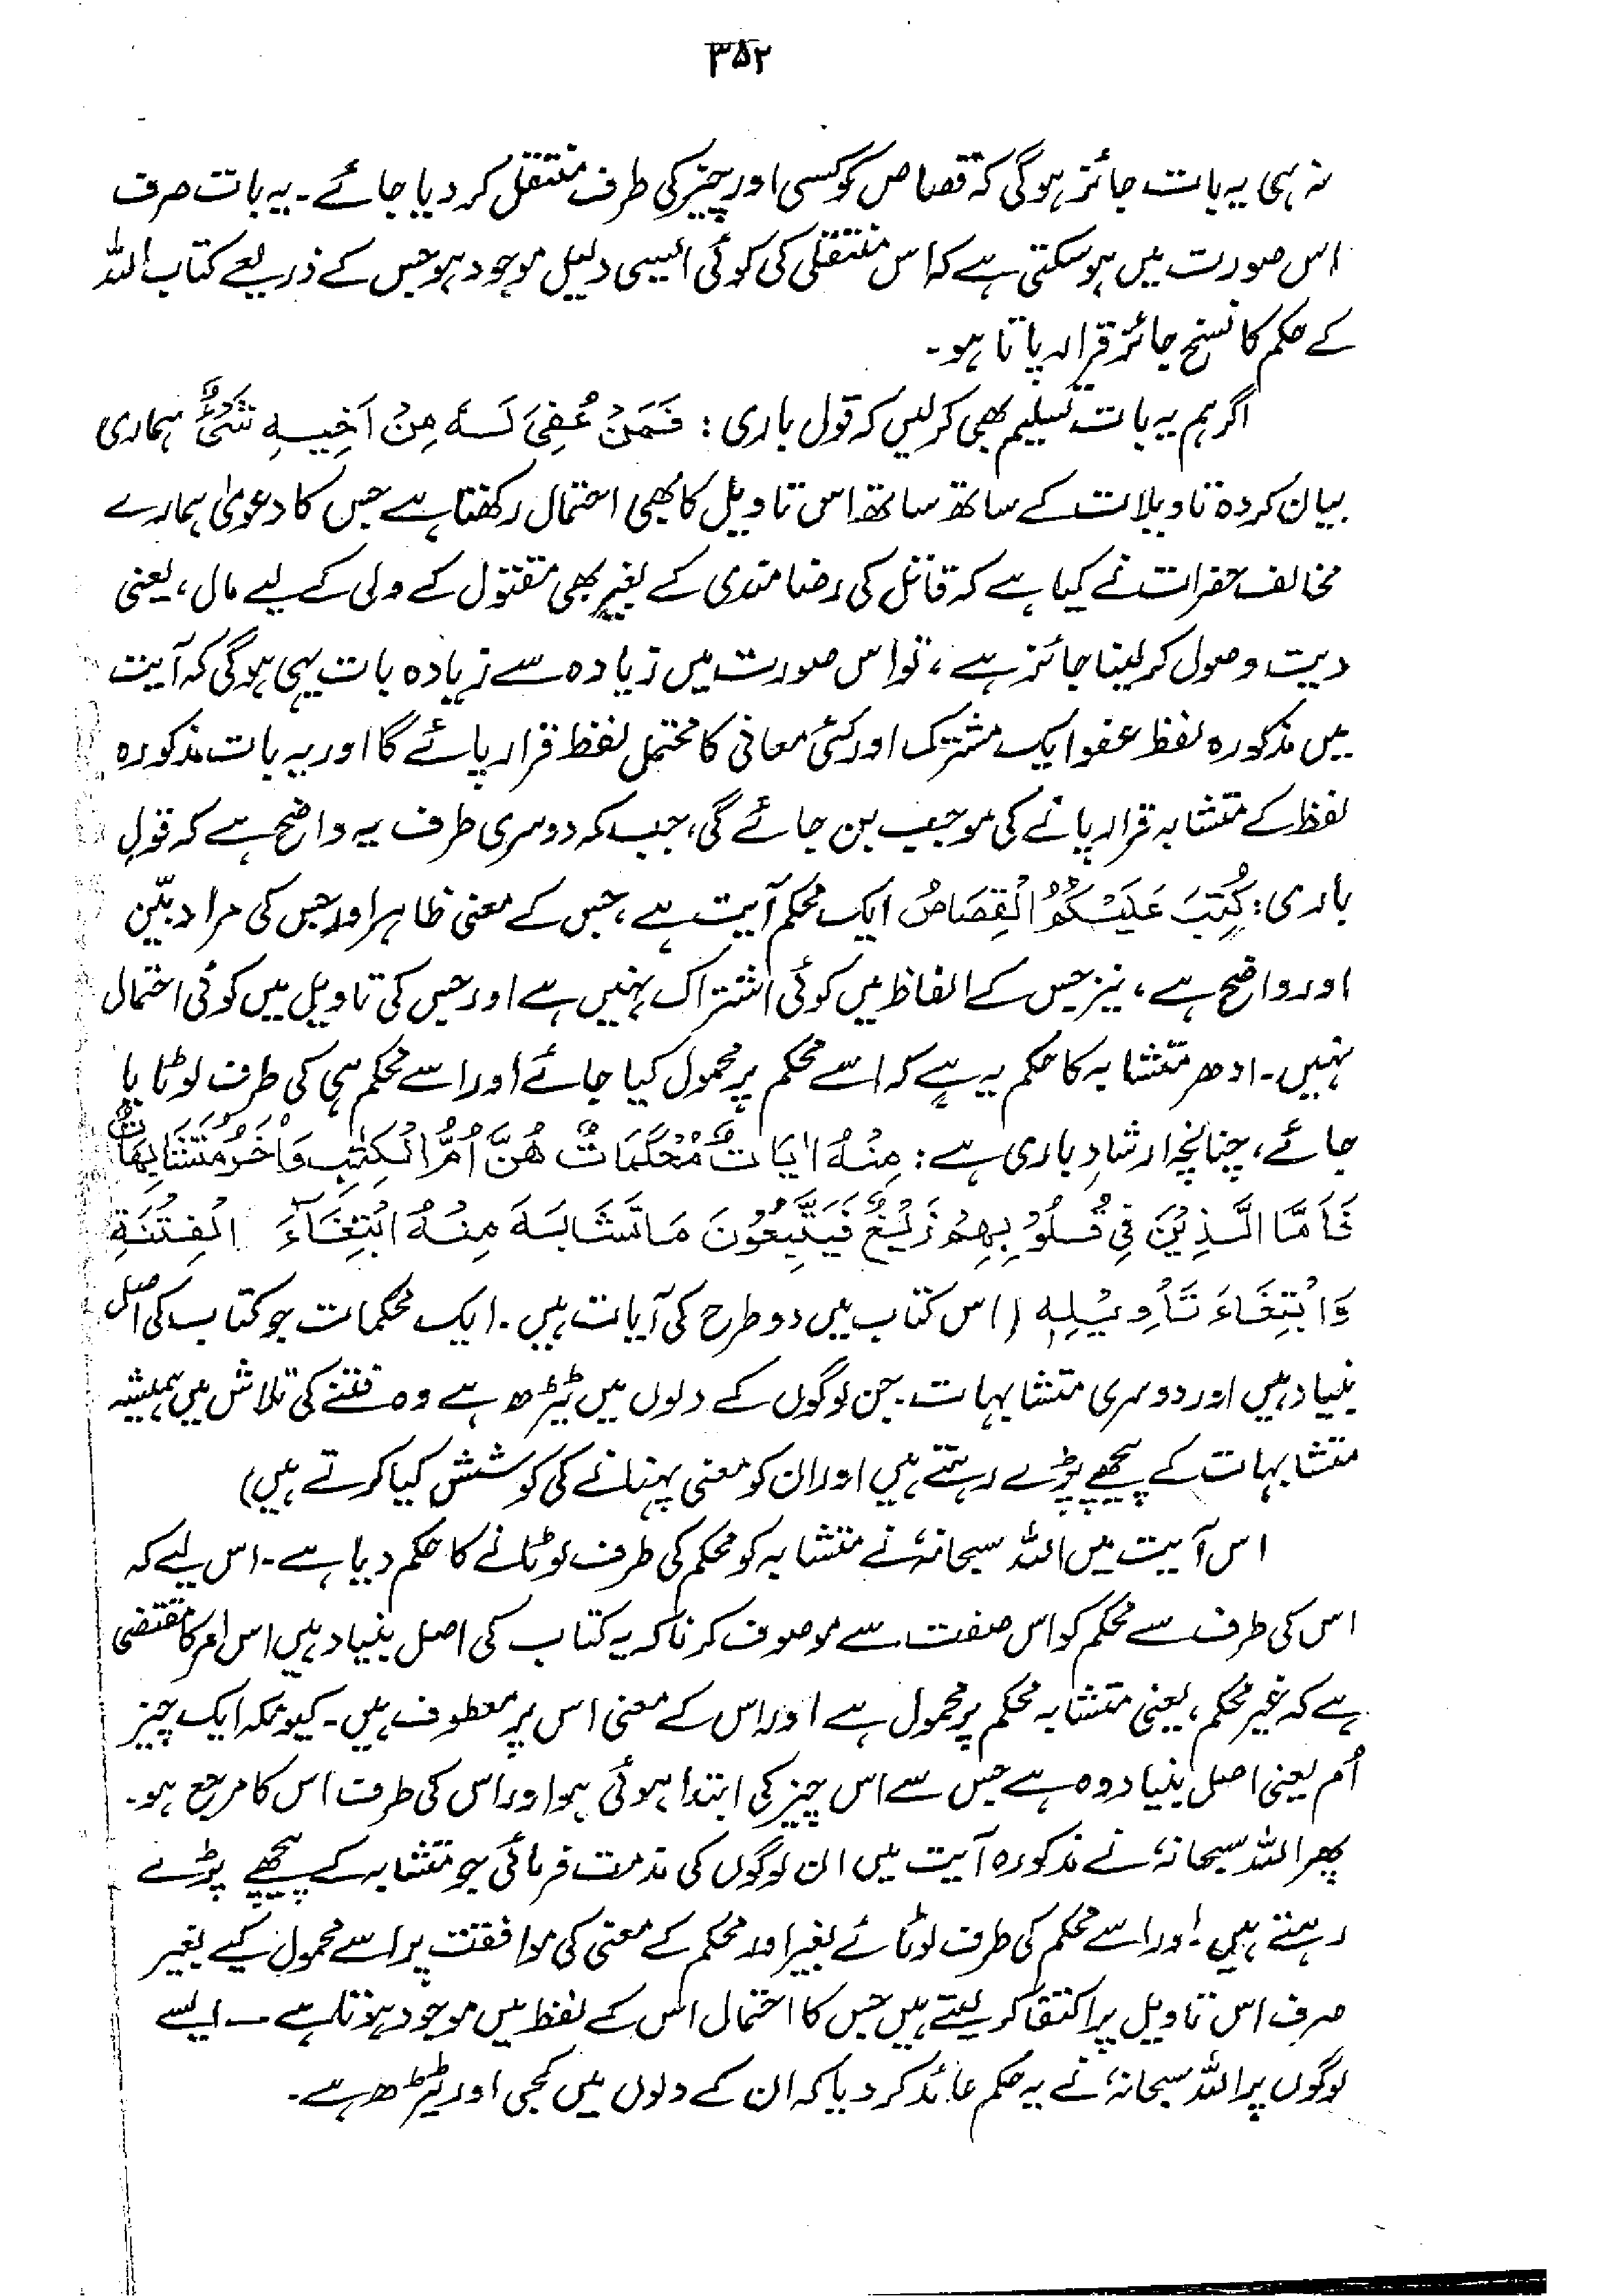 ۳۵۲
نہ ہی یہ بات جائز ہوگی کہ قصاص کو کسی اور چیز کی طرف منتقل کر دیا جائے۔ یہ بات صرف
اس صورت میں ہوسکتی ہے کہ اس منتقلی کی کوئی ایسی دلیل موجود ہو جس کے ذریعے کتاب اللہ
کے حکم کا نسخ جائز قرار پاتا ہو۔
اگر ہم یہ بات تسلیم بھی کرلیں کہ قول باری: فَمَنْ عُفِیَ لَہٗ مِنْ اَخِیْہِ شَیْءٌ ہماری
بیان کردہ تاویلات کے ساتھ ساتھ اس تاویل کا بھی احتمال رکھتا ہے جس کا دعویٰ ہمارے
مخالف حضرات نے کیا ہے کہ قاتل کی رضامندی کے بغیر بھی مقتول کے ولی کے لیے مال، یعنی
دیت وصول کرلینا جائز ہے، تو اس صورت میں زیادہ سے زیادہ بات یہی ہوگی کہ آیت
میں مذکورہ لفظ عفو ایک مشترک اور کئی معانی کا محتمل لفظ قرار پائے گا اور یہ بات مذکورہ
لفظ کے متشابہ قرار پانے کی موجب بن جائے گی، جب کہ دوسری طرف یہ واضح ہے کہ قولِ
باری: کُتِبَ عَلَیْکُمُ الْقِصَاصُ ایک محکم آیت ہے، جس کے معنی ظاہر اور جس کی مراد بیّن
اور واضح ہے، نیز جس کے الفاظ میں کوئی اشتراک نہیں ہے اور جس کی تاویل میں کوئی احتمال
نہیں۔ ادھر متشابہ کا حکم یہ ہے کہ اسے محکم پر محمول کیا جائے اور اسے محکم ہی کی طرف لوٹایا
جائے، چنانچہ ارشادِ باری ہے: مِنْہُ اٰیَاتٌ مُّحْکَمَاتٌ ھُنَّ اُمُّ الْکِتٰبِ وَاُخَرُ مُتَشَابِھَاتٌ
فَاَمَّا الَّذِیْنَ فِیْ قُلُوْبِھِمْ زَیْغٌ فَیَتَّبِعُوْنَ مَا تَشَابَہَ مِنْہُ ابْتِغَآءَ الْفِتْنَۃِ
وَابْتِغَاءَ تَاْوِیْلِہٖ (اس کتاب میں دو طرح کی آیات ہیں۔ ایک محکمات جو کتاب کی اصل
بنیاد ہیں اور دوسری متشابہات۔ جن لوگوں کے دلوں میں ٹیڑھ ہے وہ فتنے کی تلاش میں ہمیشہ
متشابہات کے پیچھے پڑے رہتے ہیں اور ان کو معنی پہنانے کی کوشش کیا کرتے ہیں)
اس آیت میں اللہ سبحانہٗ نے متشابہ کو محکم کی طرف لوٹانے کا حکم دیا ہے۔ اس لیے کہ
اس کی طرف سے محکم کو اس صفت سے موصوف کرنا کہ یہ کتاب کی اصل بنیاد ہیں اس امر کا مقتضی
ہے کہ غیر محکم، یعنی متشابہ محکم پر محمول ہے اور اس کے معنی اس پر معطوف ہیں۔ کیونکہ ایک چیز
اُم یعنی اصل بنیاد وہ ہے جس سے اس چیز کی ابتدا ہوئی ہو اور اس کی طرف اس کا مرجع ہو۔
پھر اللہ سبحانہٗ نے مذکورہ آیت میں ان لوگوں کی مذمت فرمائی جو متشابہ کے پیچھے پڑے
رہتے ہیں اور اسے محکم کی طرف لوٹائے بغیر اور محکم کے معنی کی موافقت پر اسے محمول کیے بغیر
صرف اس تاویل پر اکتفا کرلیتے ہیں جس کا احتمال اس کے لفظ میں موجود ہوتا ہے — ایسے
لوگوں پر اللہ سبحانہٗ نے یہ حکم عائد کر دیا کہ ان کے دلوں میں کجی اور ٹیڑھ ہے۔